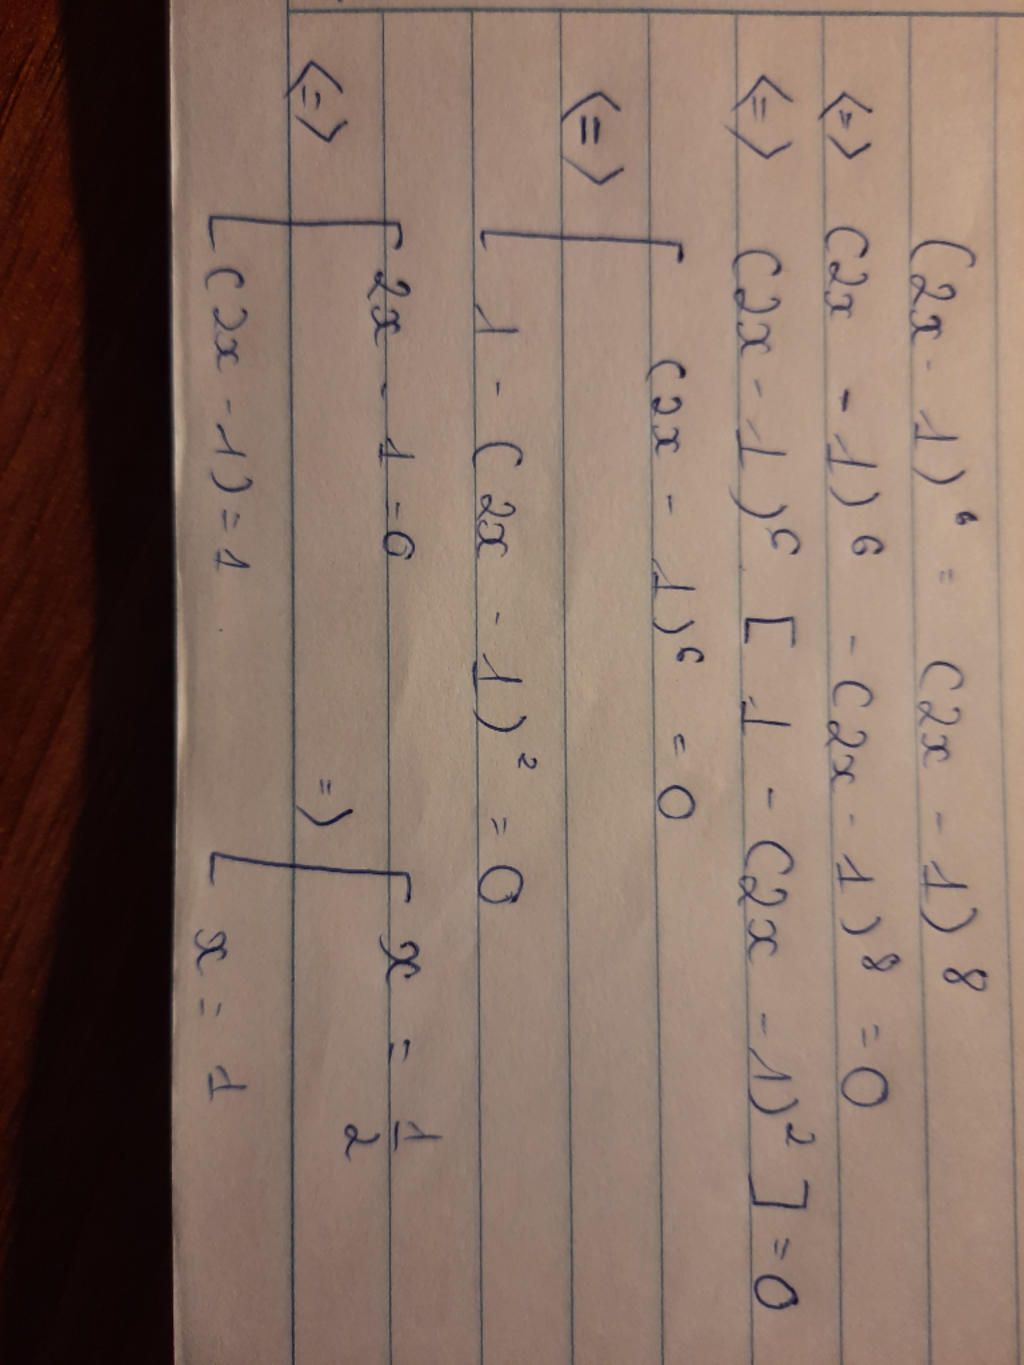 (2x - 1)⁶ = (2x - 1)⁸
<=> (2x - 1)⁶ - (2x - 1)⁸ = 0
<=> (2x - 1)⁶ . [ 1 - (2x - 1)² ] = 0
<=> [ (2x - 1)⁶ = 0
1 - (2x - 1)² = 0
<=> [ 2x - 1 = 0 => [ x = 1/2
(2x - 1) = 1 x = 1